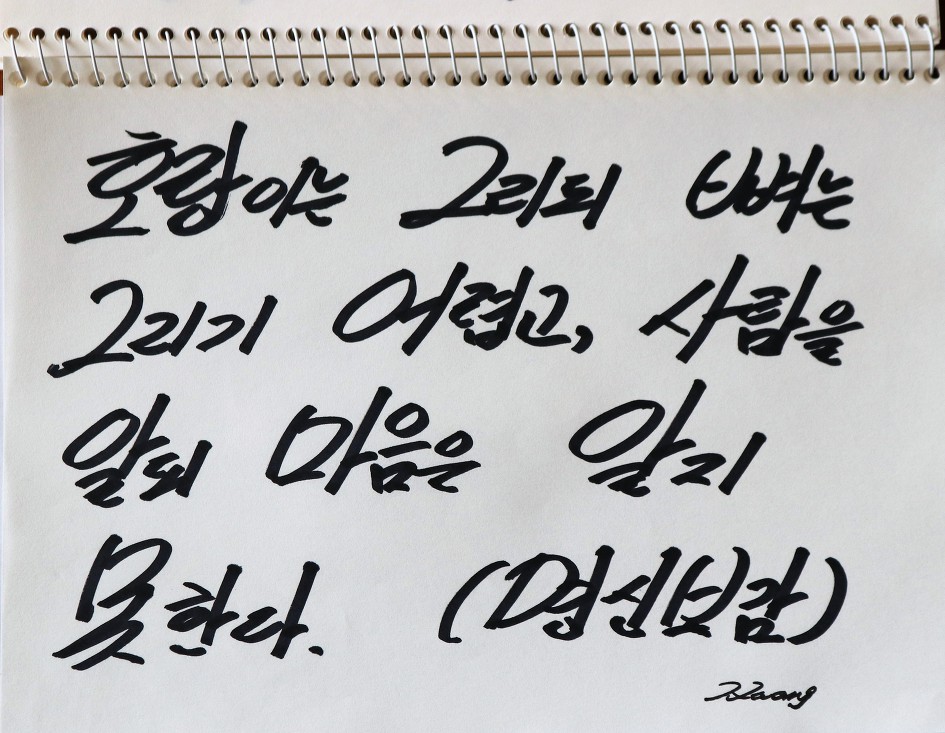 호랑이는 그리되 뼈는
그리기 어렵고, 사람을
알되 마음은 알지
못한다. (명심보감)